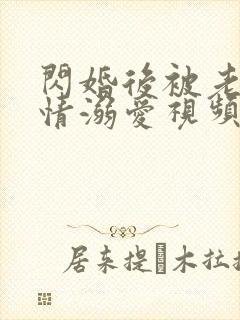 閃婚後被老
情溺愛視頻
居来提•木拉提